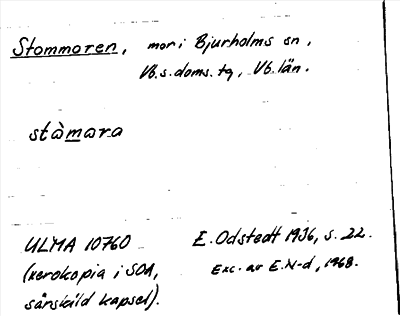 Stommoren, mor i Bjurholms sn,
Vb.s.doms.tg, Vb.län.
stòmara
ULMA 10760 E. Odstedt 1936, s. 22.
(xerokopia i SOA, Exc. av E.N-d, 1968.
särskild kapsel).